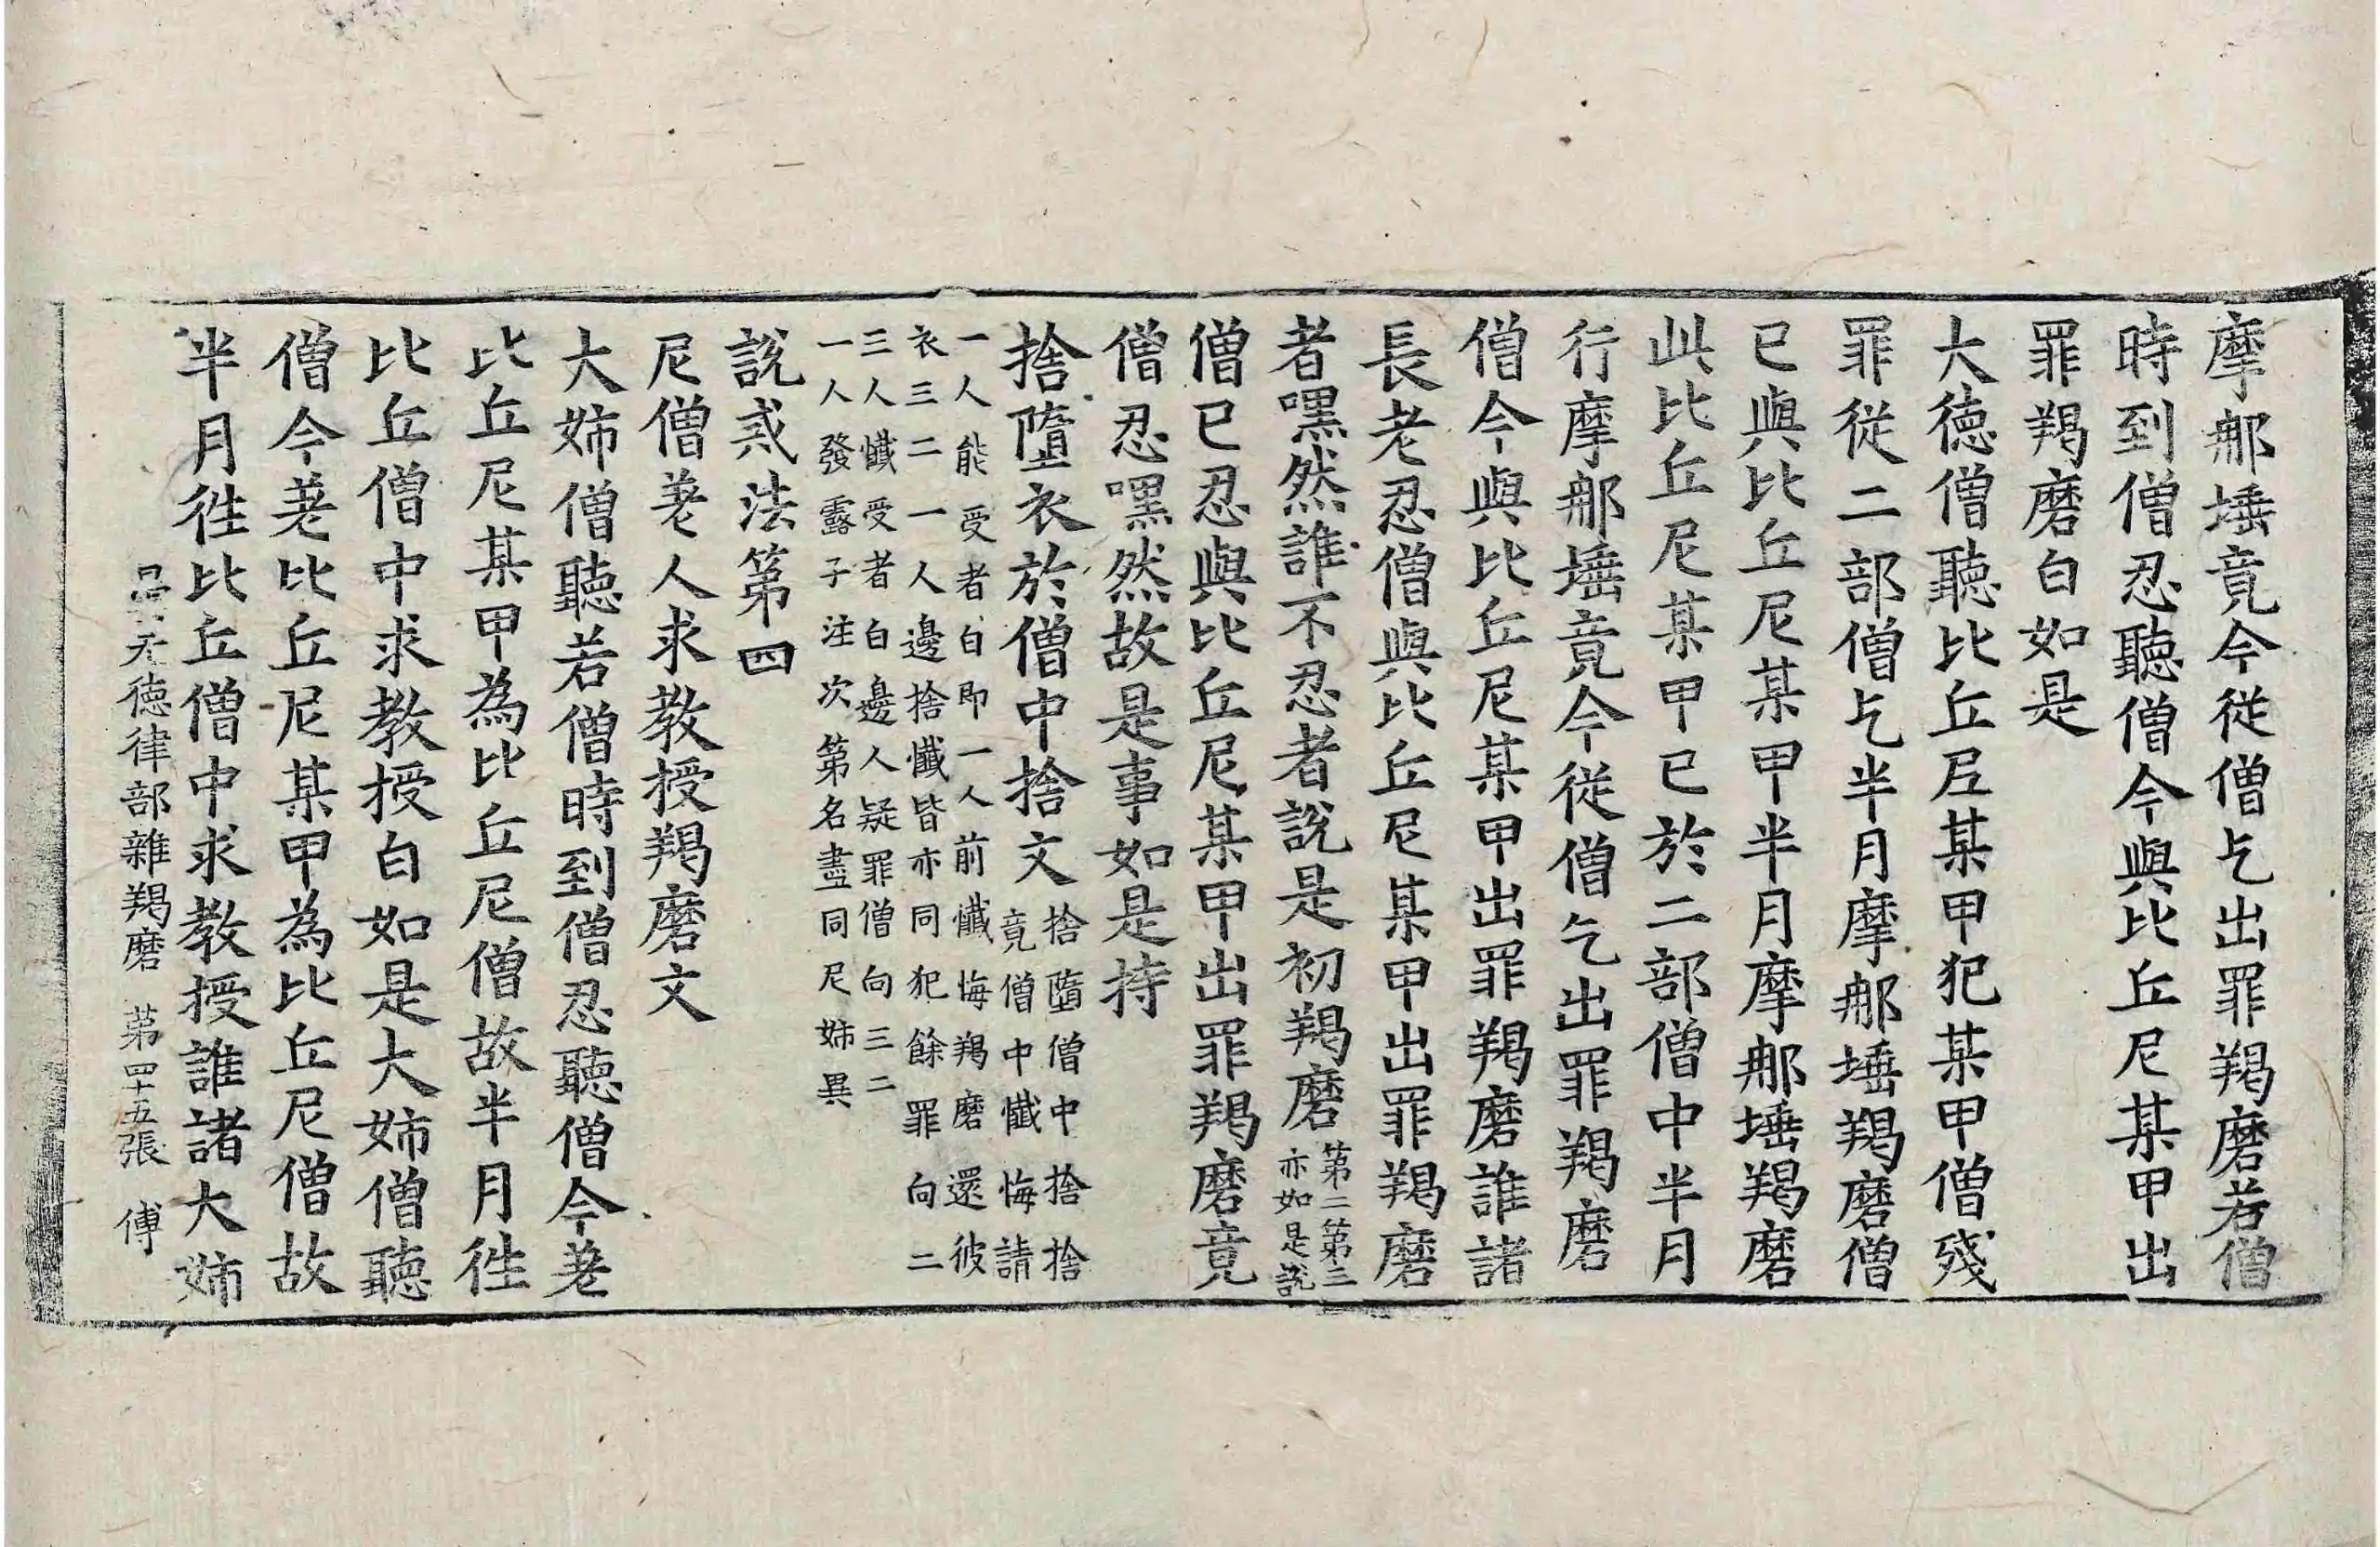 摩那埵竟今從僧乞出罪羯磨若僧
時到僧忍聽僧今與比丘尼某甲出
罪羯磨白如是
大德僧聽比丘尼某甲犯某甲僧殘
罪從二部僧乞半月摩那埵羯磨僧
已與比丘尼某甲半月摩那埵羯磨
此比丘尼某甲已於二部僧中半月
行摩那埵竟今從僧乞出罪羯磨
僧今與比丘尼某甲出罪羯磨誰諸
長老忍僧與比丘尼某甲出罪羯磨
者嘿然誰不忍者說是初羯磨第二第三
亦如是說
僧已忍與比丘尼某甲出罪羯磨竟
僧忍嘿然故是事如是持
捨墮衣於僧中捨文捨墮僧中捨捨
竟僧中懺悔請
一人能受者白即一人前懺悔羯磨還彼
衣三二一人邊捨懺皆亦同犯餘罪向二
三人懺受者白邊人疑罪僧向三二
一人發露子注次第名盡同尼姊異
說戒法第四
尼僧差人求教授羯磨文
大姊僧聽若僧時到僧忍聽僧今差
比丘尼某甲為比丘尼僧故半月徃
比丘僧中求教授白如是大姊僧聽
僧今差比丘尼某甲為比丘尼僧故
半月徃比丘僧中求教授誰諸大姊
曇无德律部雜羯磨 第四十五張 傅